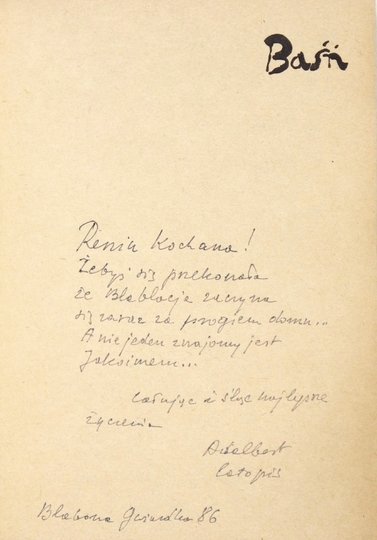 Baśń
Reniu Kochana!
Żebyś się przekonała
że Blablacja zaczyna
się zaraz za progiem domu...
A niejeden znajomy jest
Jaksimem...
całując i śląc najlepsze
życzenia
Adalbert
Latopis
Blabona Gwiazdka 86